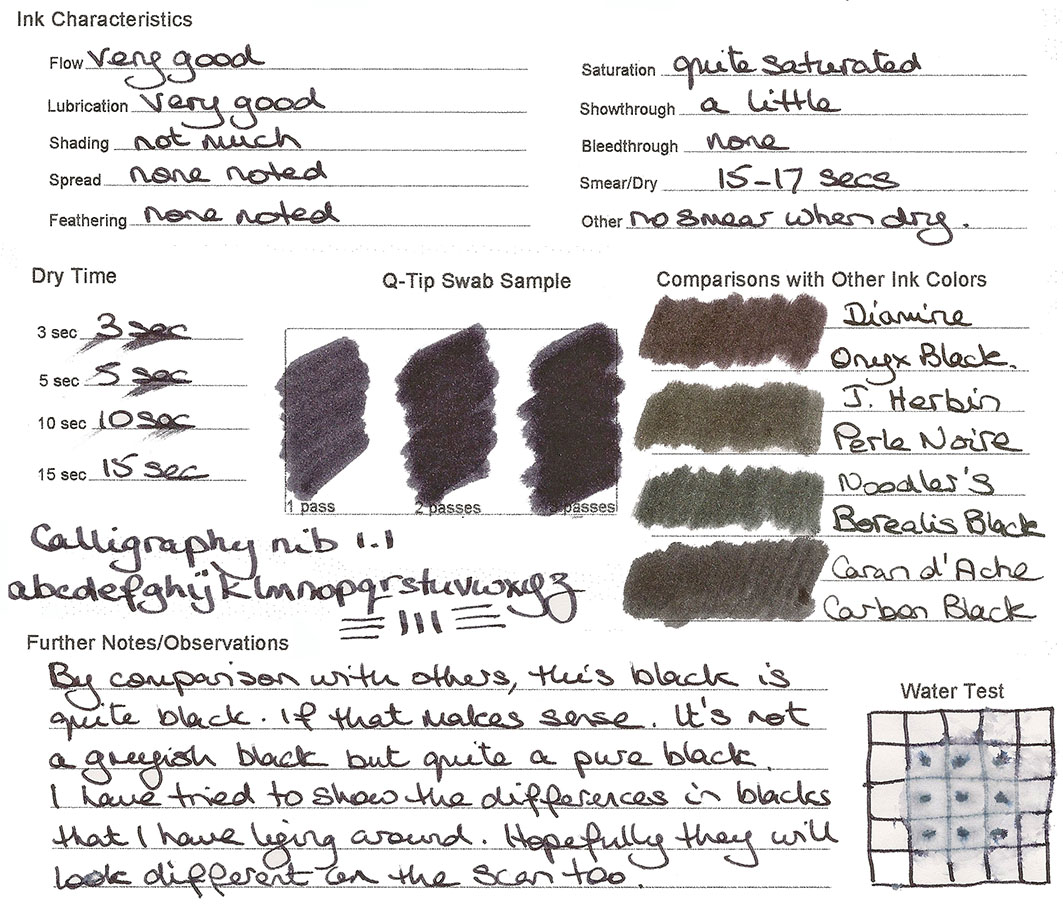 Ink Characteristics
Flow very good
Lubrication very good
Shading not much
Spread none noted
Feathering none noted
Saturation quite saturated
Showthrough a little
Bleedthrough none
Smear/Dry 15-17 secs
Other no smear when dry.
Dry Time
3 sec 3 sec
5 sec 5 sec
10 sec 10 sec
15 sec 15 sec
Q-Tip Swab Sample
1 pass 2 passes 3 passes
Comparisons with Other Ink Colors
Diamine
Onyx Black.
J. Herbin
Perle Noire
Noodler's
Borealis Black
Caran d'Ache
Carbon Black
Calligraphy nib 1.1
abcdefghijklmnopqrstuvwxyz
Further Notes/Observations
By comparison with others, this black is
quite black. If that makes sense. It's not
a greyish black but quite a pure black.
I have tried to show the differences in blacks
that I have lying around. Hopefully they will
look different on the scan too.
Water Test